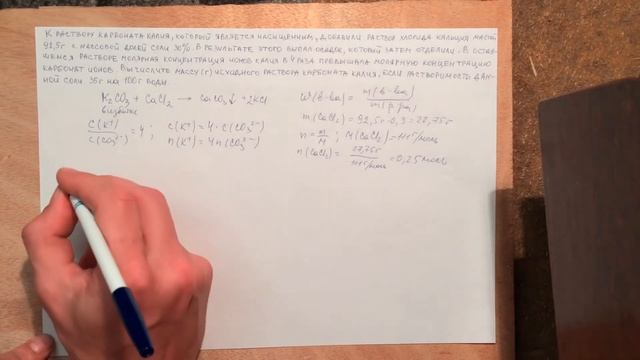 К РАСТВОРУ КАРБОНАТА КАЛИЯ, КОТОРЫЙ ЯВЛЯЕТСЯ НАСЫЩЕННЫМ, ДОБАВИЛИ РАСТВОР ХЛОРИДА КАЛЬЦИЯ МАССОЙ
92,5г С МАССОВОЙ ДОЛЕЙ СОЛИ 30%. В РЕЗУЛЬТАТЕ ЭТОГО ВЫПАЛ ОСАДОК, КОТОРЫЙ ЗАТЕМ ОТДЕЛИЛИ. В ОСТАВ-
ШЕМСЯ РАСТВОРЕ МОЛЯРНАЯ КОНЦЕНТРАЦИЯ ИОНОВ КАЛИЯ В 4 РАЗА ПРЕВЫШАЛА МОЛЯРНУЮ КОНЦЕНТРАЦИЮ
КАРБОНАТ ИОНОВ. ВЫЧИСЛИТЕ МАССУ (г) ИСХОДНОГО РАСТВОРА КАРБОНАТА КАЛИЯ, ЕСЛИ РАСТВОРИМОСТЬ ДАН-
НОЙ СОЛИ НА 100г ВОДЫ.
K2CO3 + CaCl2 → CaCO3↓ + 2KCl
избыток
c(K+)/c(CO3 2-) = 4; c(K+) = 4·c(CO3 2-)
n(K+) = 4n(CO3 2-)
ω(в-ва) = m(в-ва)/m(р-ра)
m(CaCl2) = 92,5г·0,3 = 27,75г
n = m/M; M(CaCl2) = 111г/моль
n(CaCl2) = 27,75г/111г/моль = 0,25моль